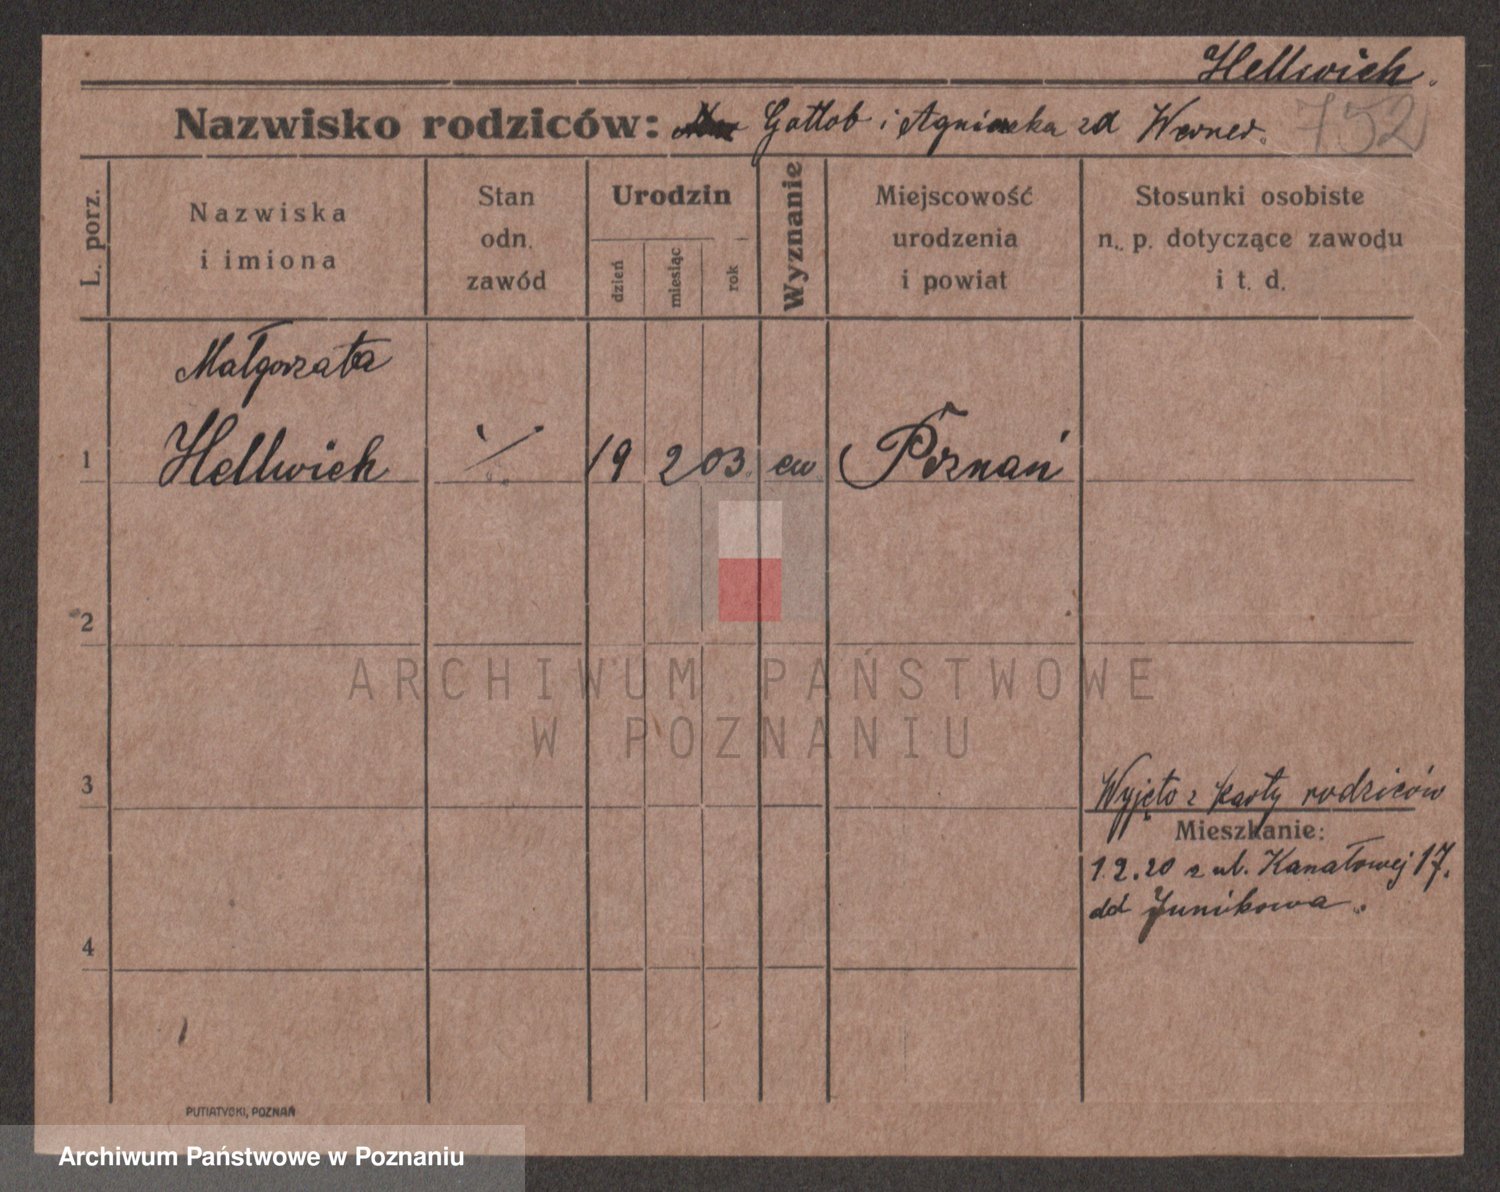 Hellwich.
Nazwisko rodziców: Gotlob i Agnieszka zd Werner.
752
L. porz.
Nazwiska
i imiona
Stan
odn.
zawód
Urodzin
dzień
miesiąc
rok
Wyznanie
Miejscowość
urodzenia
i powiat
Stosunki osobiste
n. p. dotyczące zawodu
i t. d.
Małgorzata
1 Hellwich ./. 19 2 03. ew. Poznań
2
ARCHIWUM PAŃSTWOWE
W POZNANIU
3
Wyjęto z karty rodziców
Mieszkanie:
1.2.20 z ul. Kanałowej 17.
do Junikowa.
4
PUTIATYCKI, POZNAŃ
Archiwum Państwowe w Poznaniu